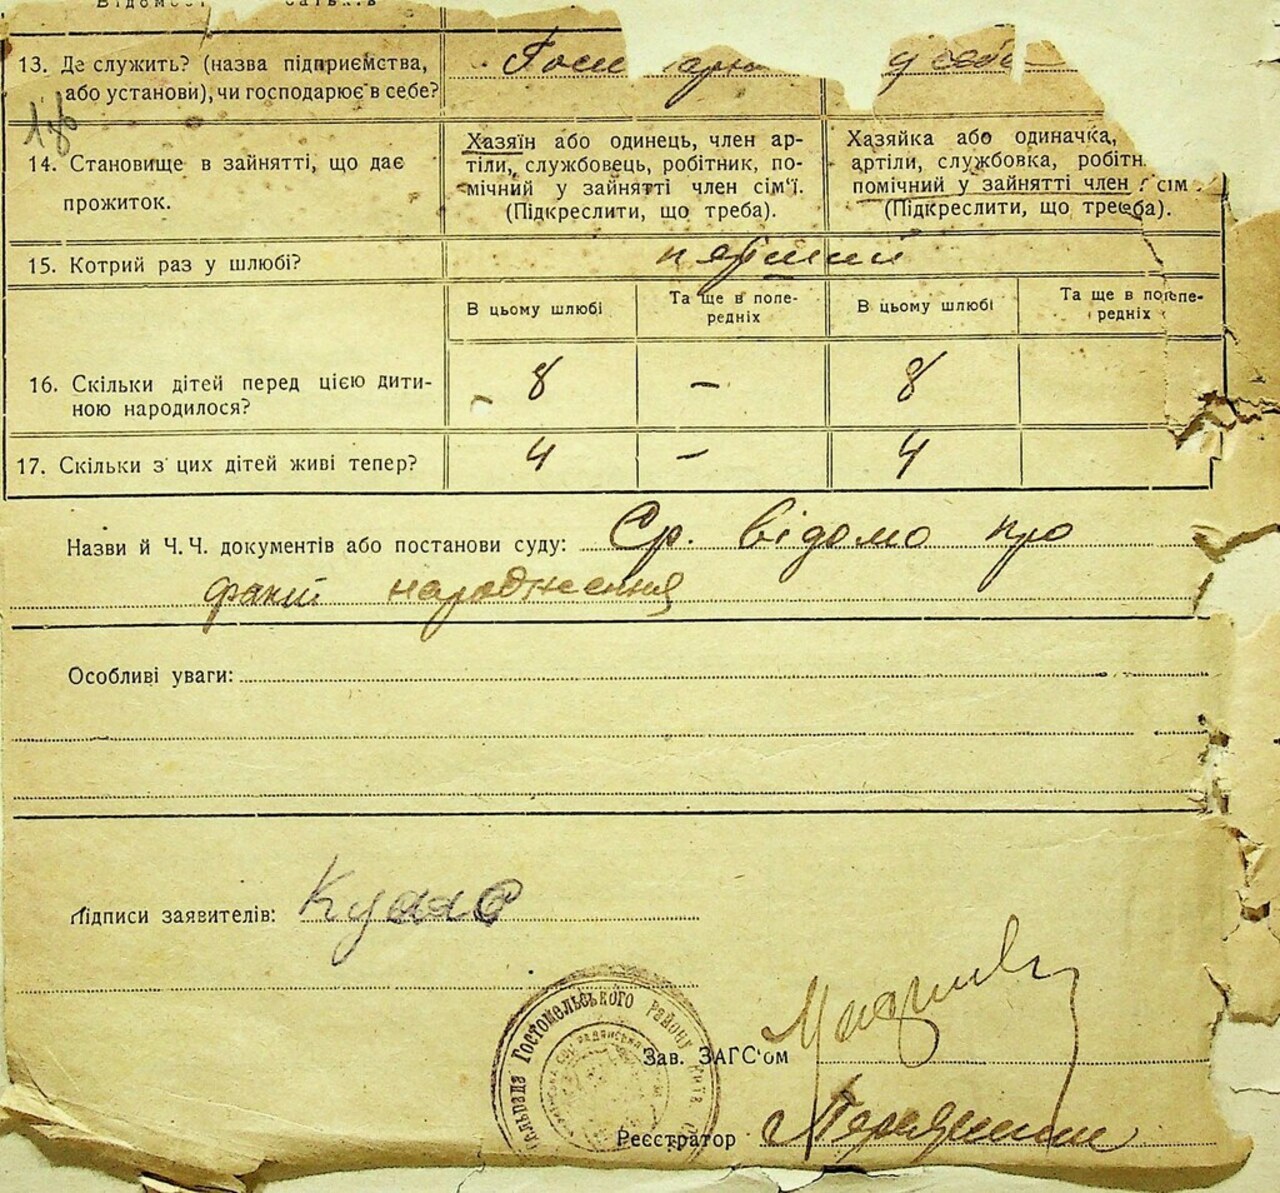 13. Де служить? (назва підприємства,
або установи), чи господарює в себе?
у себе
14. Становище в зайнятті, що дає
прожиток.
Хазяїн або одинець, член ар-
тіли, службовець, робітник, по-
мічний у зайнятті член сім'ї.
(Підкреслити, що треба).
Хазяйка або одиначка,
артіли, службовка, робітн
помічний у зайнятті член сім
(Підкреслити, що треба).
15. Котрий раз у шлюбі?
перший
В цьому шлюбі
Та ще в попе-
редніх
В цьому шлюбі
Та ще в попе-
редніх
16. Скільки дітей перед цією дити-
ною народилося?
8 – 8
17. Скільки з цих дітей живі тепер?
4 – 4
Назви й Ч. Ч. документів або постанови суду: Ср. відомо про
факт народження
Особливі уваги:
Підписи заявителів:
Гостомельського району Київ
Зав. ЗАГС'ом
Реєстратор